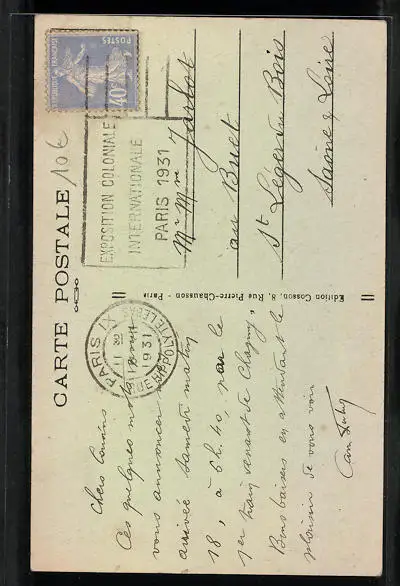 CARTE POSTALE
10 €
POSTES
REPUBLIQUE FRANCAISE
40c
EXPOSITION COLONIALE
INTERNATIONALE
PARIS 1931
PARIS IX
R. HIPPOLYTE LEBAS
1931
Mr Mme Jarlot
au Buet
St Léger du Bois
Saône & Loire
Edition Gosson, 8, Rue Pierre-Chausson - Paris
Chers Cousins
Ces quelques mots pour
vous annoncer
arrivée samedi matin
18, à 6h.40, par le
1er train venant de Chagny,
Bons baisers en attendant le
plaisir de vous voir